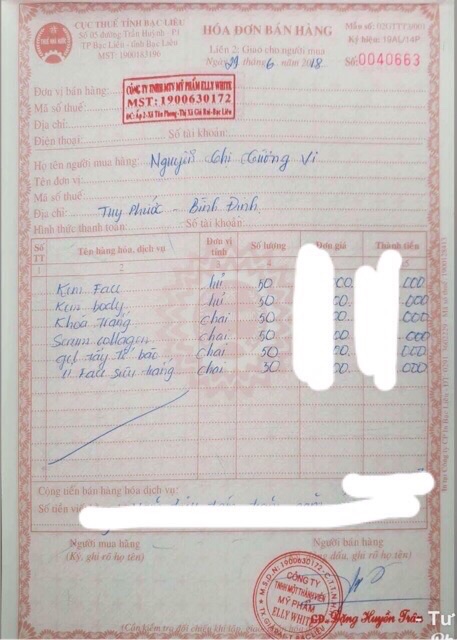 CỤC THUẾ TỈNH BẠC LIÊU
Số 05 đường Trần Huỳnh - P1
TP Bạc Liêu - tỉnh Bạc Liêu
MST: 1900163196
HÓA ĐƠN BÁN HÀNG
Liên 2: Giao cho người mua
Ngày 29 tháng 6 năm 2018
Mẫu số: 02GTTT3/001
Ký hiệu: 19AL/14P
Số: 0040663
Đơn vị bán hàng:
CÔNG TY TNHH MTV MỸ PHẨM ELLY WHITE
MST: 1900630172
ĐC: Ấp 2-Xã Tân Phong-Thị Xã Giá Rai-Bạc Liêu
Mã số thuế:
Địa chỉ:
Điện thoại: Số tài khoản:
Họ tên người mua hàng: Nguyễn Chi Cường Vi
Tên đơn vị:
Mã số thuế:
Địa chỉ: Tuy Phước - Bình Định
Hình thức thanh toán: Số tài khoản:
Số TT Tên hàng hóa, dịch vụ Đơn vị tính Số lượng Đơn giá Thành tiền
Kem Face hủ 50 000
Kem body hủ 50 000
Khóa trắng chai 50 000
Serum collagen chai 50 000
gel tẩy tế bào chai 50 000
Face siêu trắng chai 50 000
Cộng tiền bán hàng hóa dịch vụ:
Số tiền viết
Người mua hàng
(Ký, ghi rõ họ tên)
Người bán hàng
dấu, ghi rõ họ tên)
M.S.D.N: 1900630172
CÔNG TY
TNHH MỘT THÀNH VIÊN
MỸ PHẨM
ELLY WHITE
GĐ. Đặng Huyền Trân
Tư